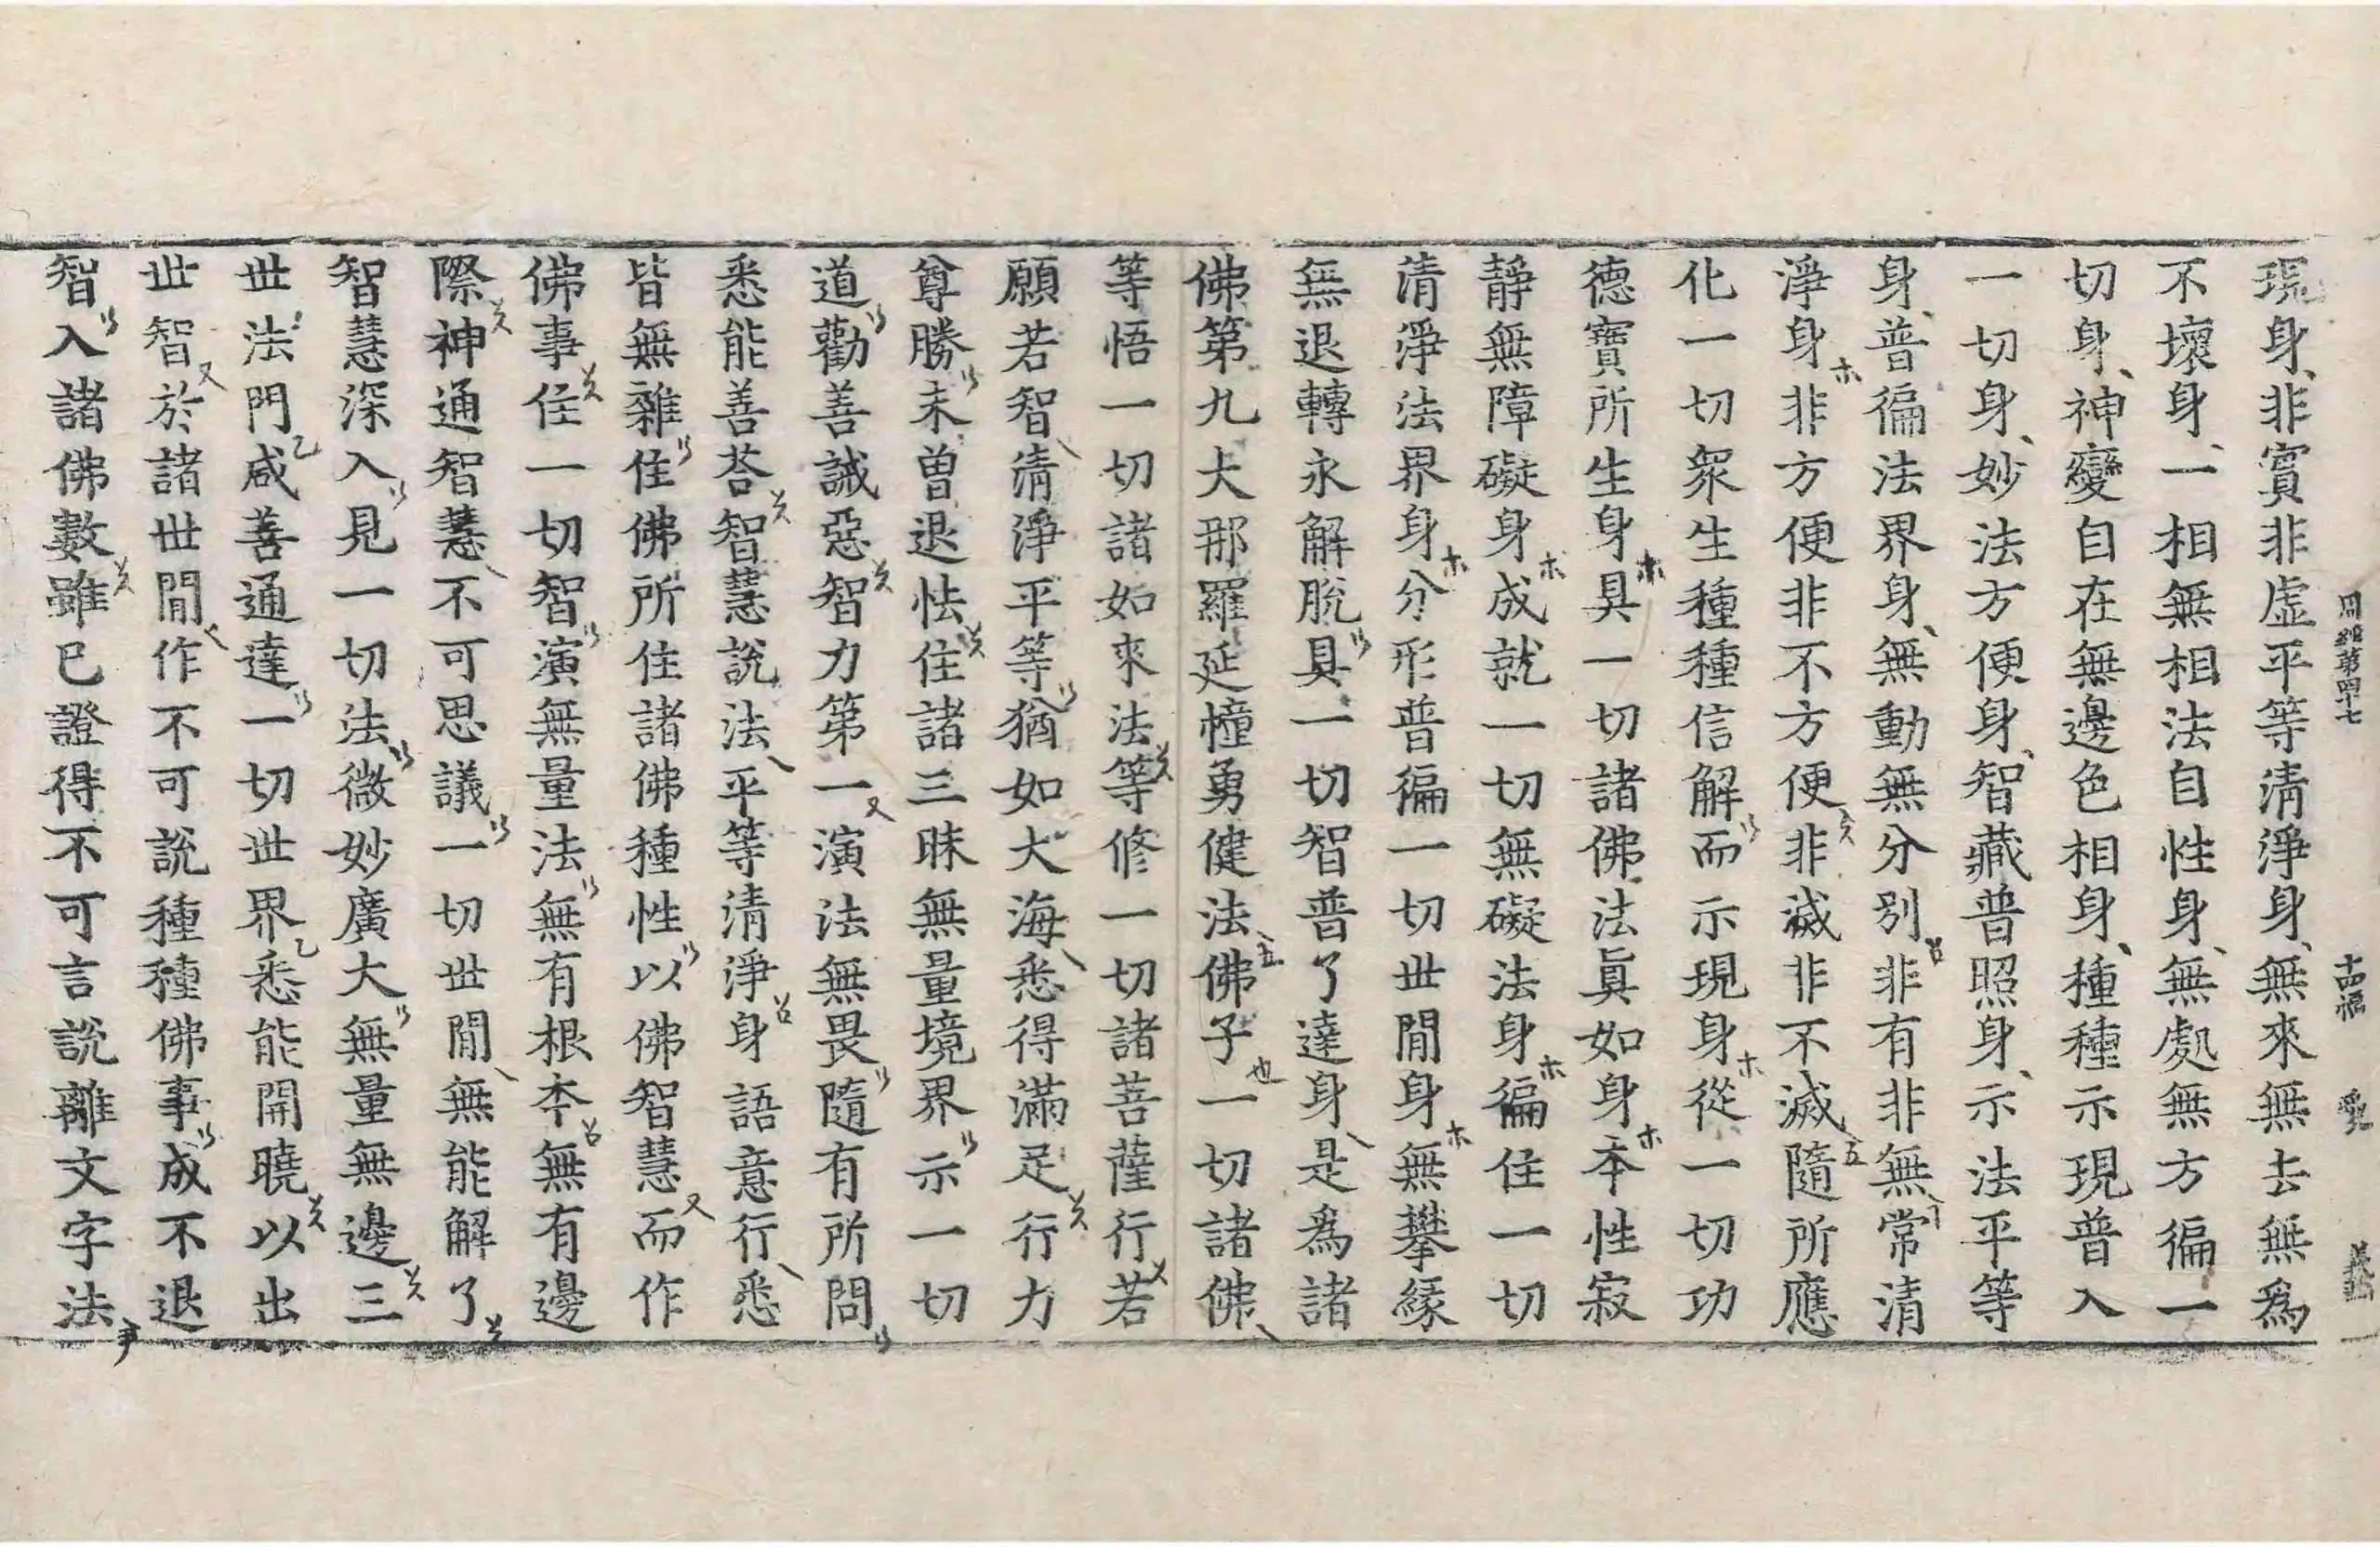 周經第四十七 十四幅
現身非實非虛平等清淨身無來無去無爲
不壞身一相無相法自性身無處無方徧一
切身神變自在無邊色相身種種示現普入
一切身妙法方便身智藏普照身示法平等
身普徧法界身無動無分別非有非無常清
淨身非方便非不方便非滅非不滅隨所應
化一切衆生種種信解而示現身從一切功
德寶所生身具一切諸佛法眞如身本性寂
靜無障礙身成就一切無礙法身徧住一切
清淨法界身分形普徧一切世間身無攀緣
無退轉永解脫具一切智普了達身是爲諸
佛第九大那羅延幢勇健法佛子一切諸佛
等悟一切諸如來法等修一切諸菩薩行若
願若智清淨平等猶如大海悉得滿足行力
尊勝未曾退怯住諸三昧無量境界示一切
道勸善誡惡智力第一演法無畏隨有所問
悉能善荅智慧說法平等清淨身語意行悉
皆無雜住佛所住諸佛種性以佛智慧而作
佛事住一切智演無量法無有根本無有邊
際神通智慧不可思議一切世間無能解了
智慧深入見一切法微妙廣大無量無邊三
世法門咸善通達一切世界悉能開曉以出
世智於諸世間作不可說種種佛事成不退
智入諸佛數雖已證得不可言說離文字法